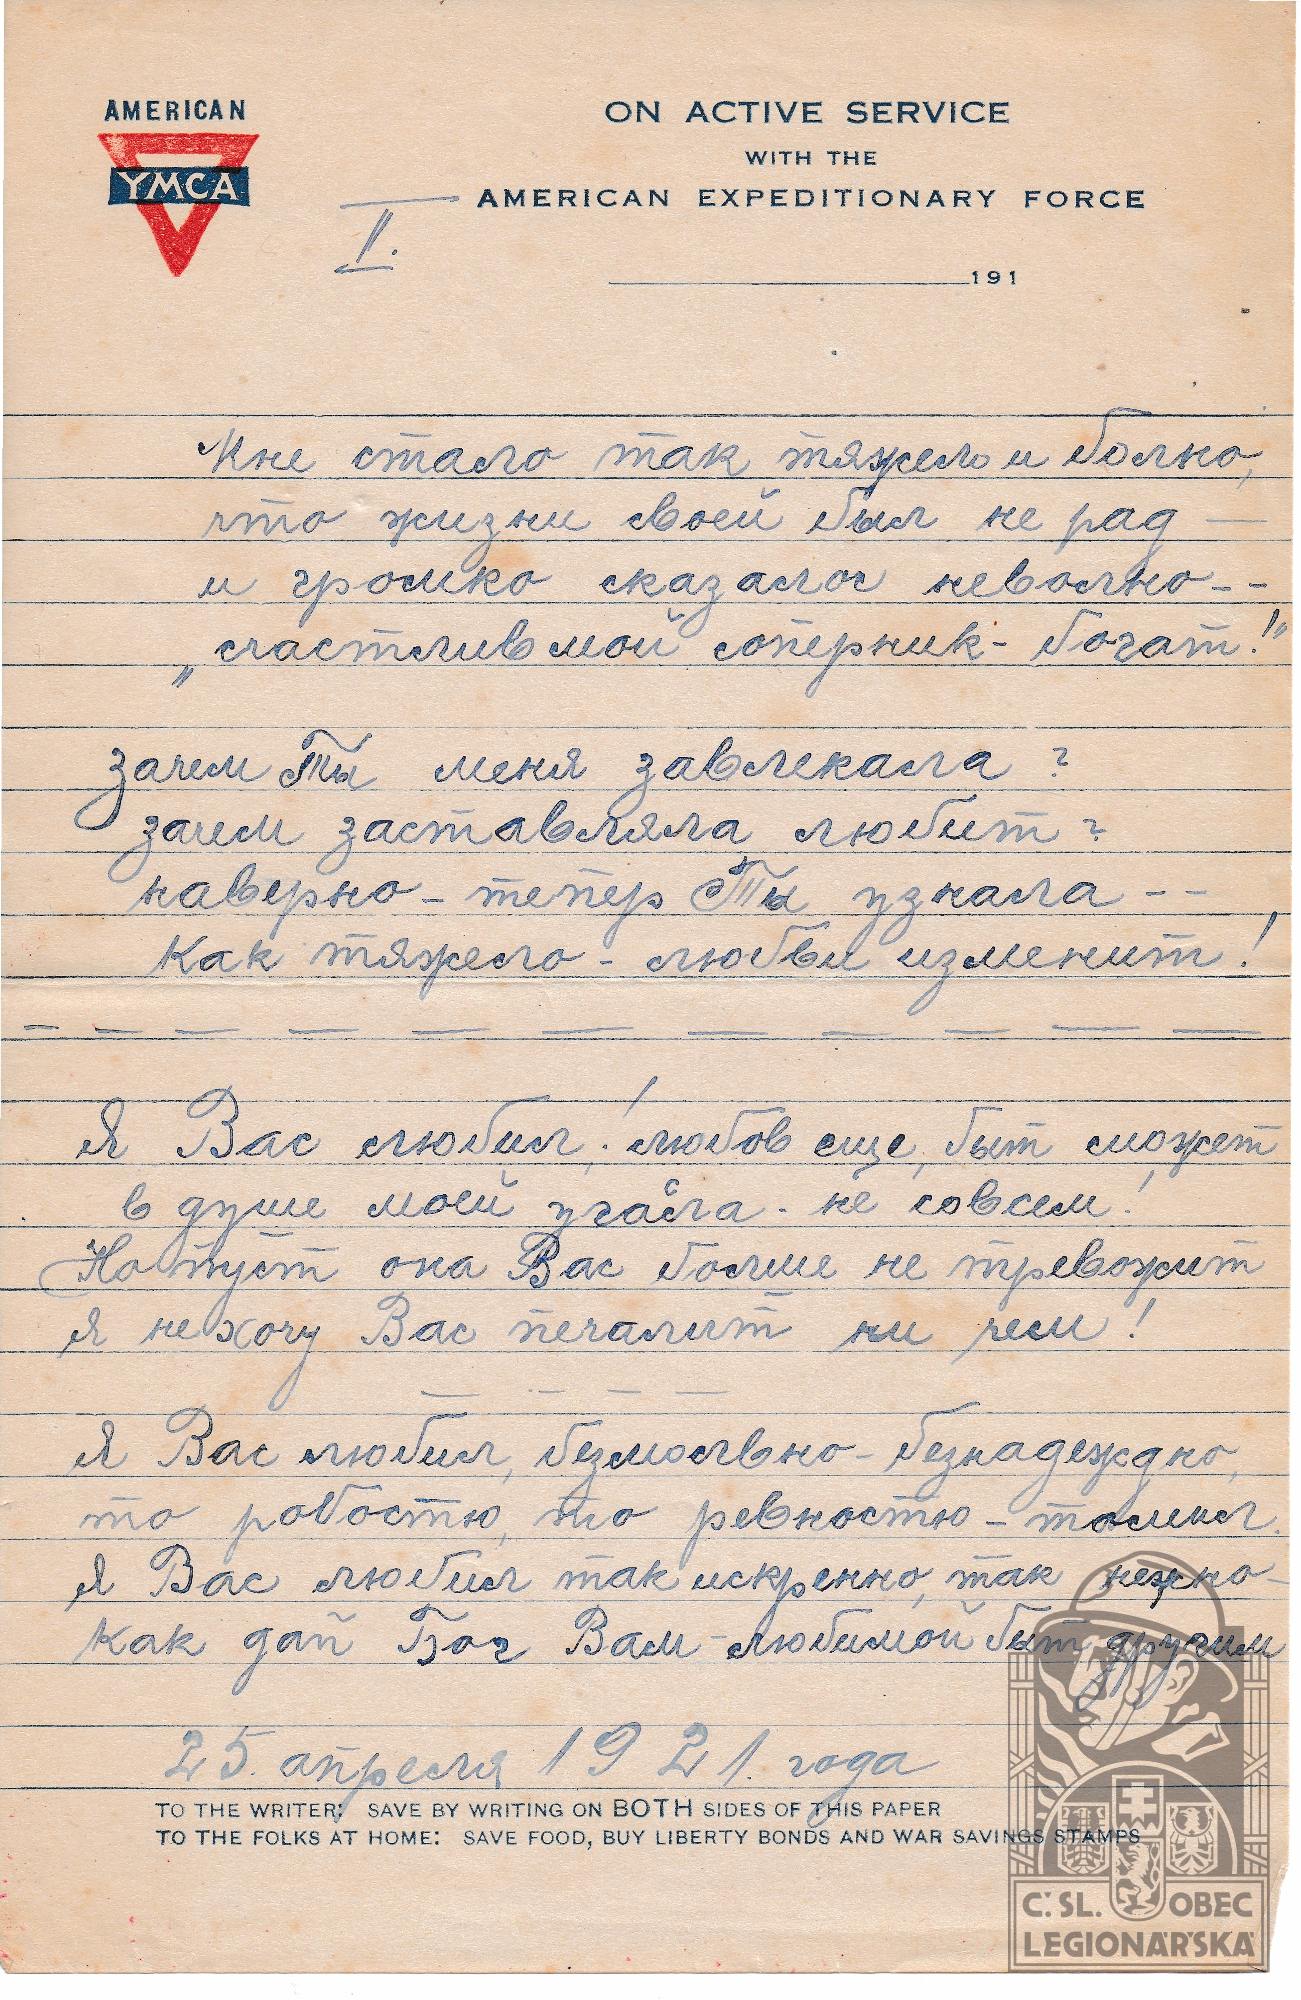 AMERICAN
YMCA
ON ACTIVE SERVICE
WITH THE
AMERICAN EXPEDITIONARY FORCE
II.
191
Мне стало так тяжело и болно,
что жизни своей был не рад —
и громко сказалос неволно - -
„счастлив мой соперник - богат!"
Зачем Ты меня завлекала?
зачем заставляла любит?
наверно - тепер Ты узнала - -
как тяжело - любви изменит!
Я Вас любил! любов еще, быт может
в душе моей угасла не совсем!
Но пуст она Вас болше не тревожит
Я не хочу Вас печалит ни чем!
Я Вас любил, безмолвно - безнадеждно,
то робостю, то ревностю - томим.
Я Вас любил так искренно, так нежно -
Как дай Бог Вам - любимой быт другим
25. апреля 1921. года
TO THE WRITER: SAVE BY WRITING ON BOTH SIDES OF THIS PAPER
TO THE FOLKS AT HOME: SAVE FOOD, BUY LIBERTY BONDS AND WAR SAVINGS STAMPS
Č. SL. OBEC
LEGIONÁŘSKÁ